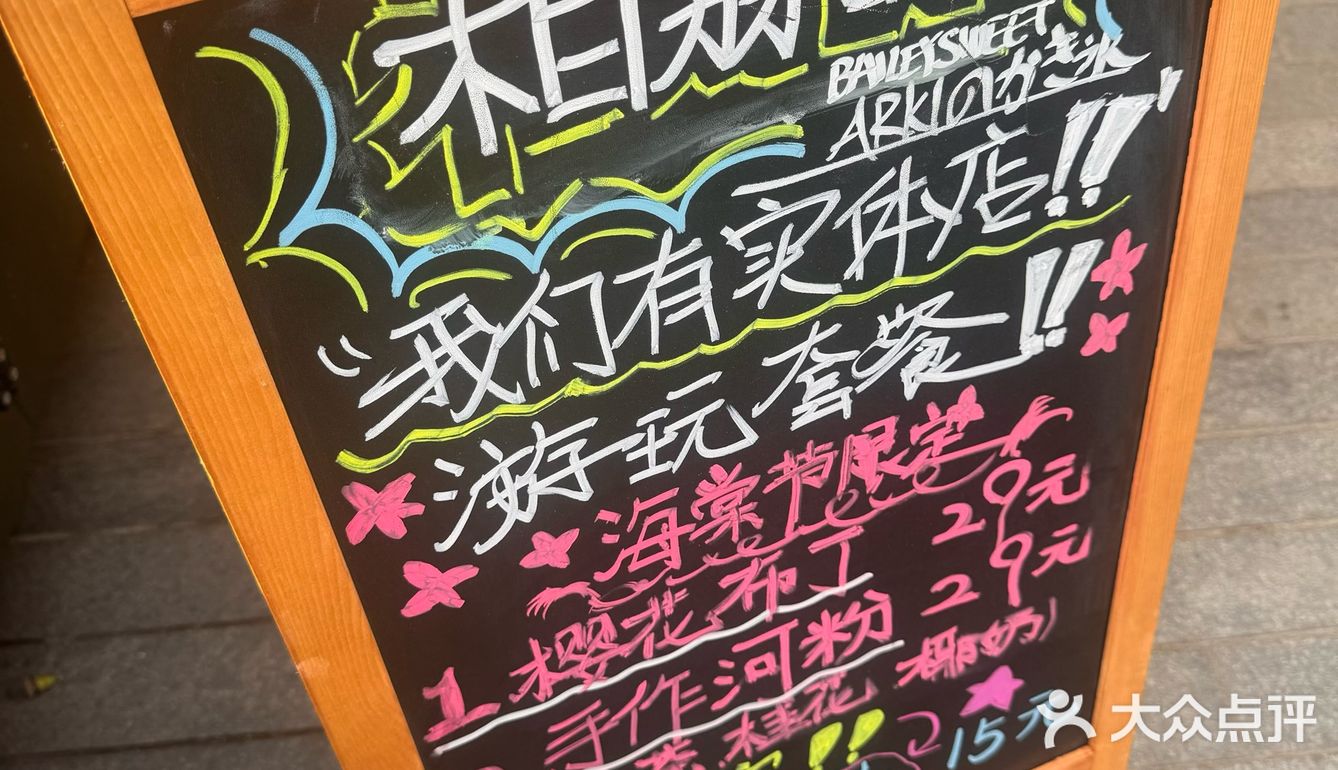 相荔
BAILEYSWEET
ARKIのかき氷
我们有实体店!!
游玩套餐!!
海棠节限定
1 樱花布丁 29元
手作河粉 29元
桂花 椰奶)
15元
大众点评